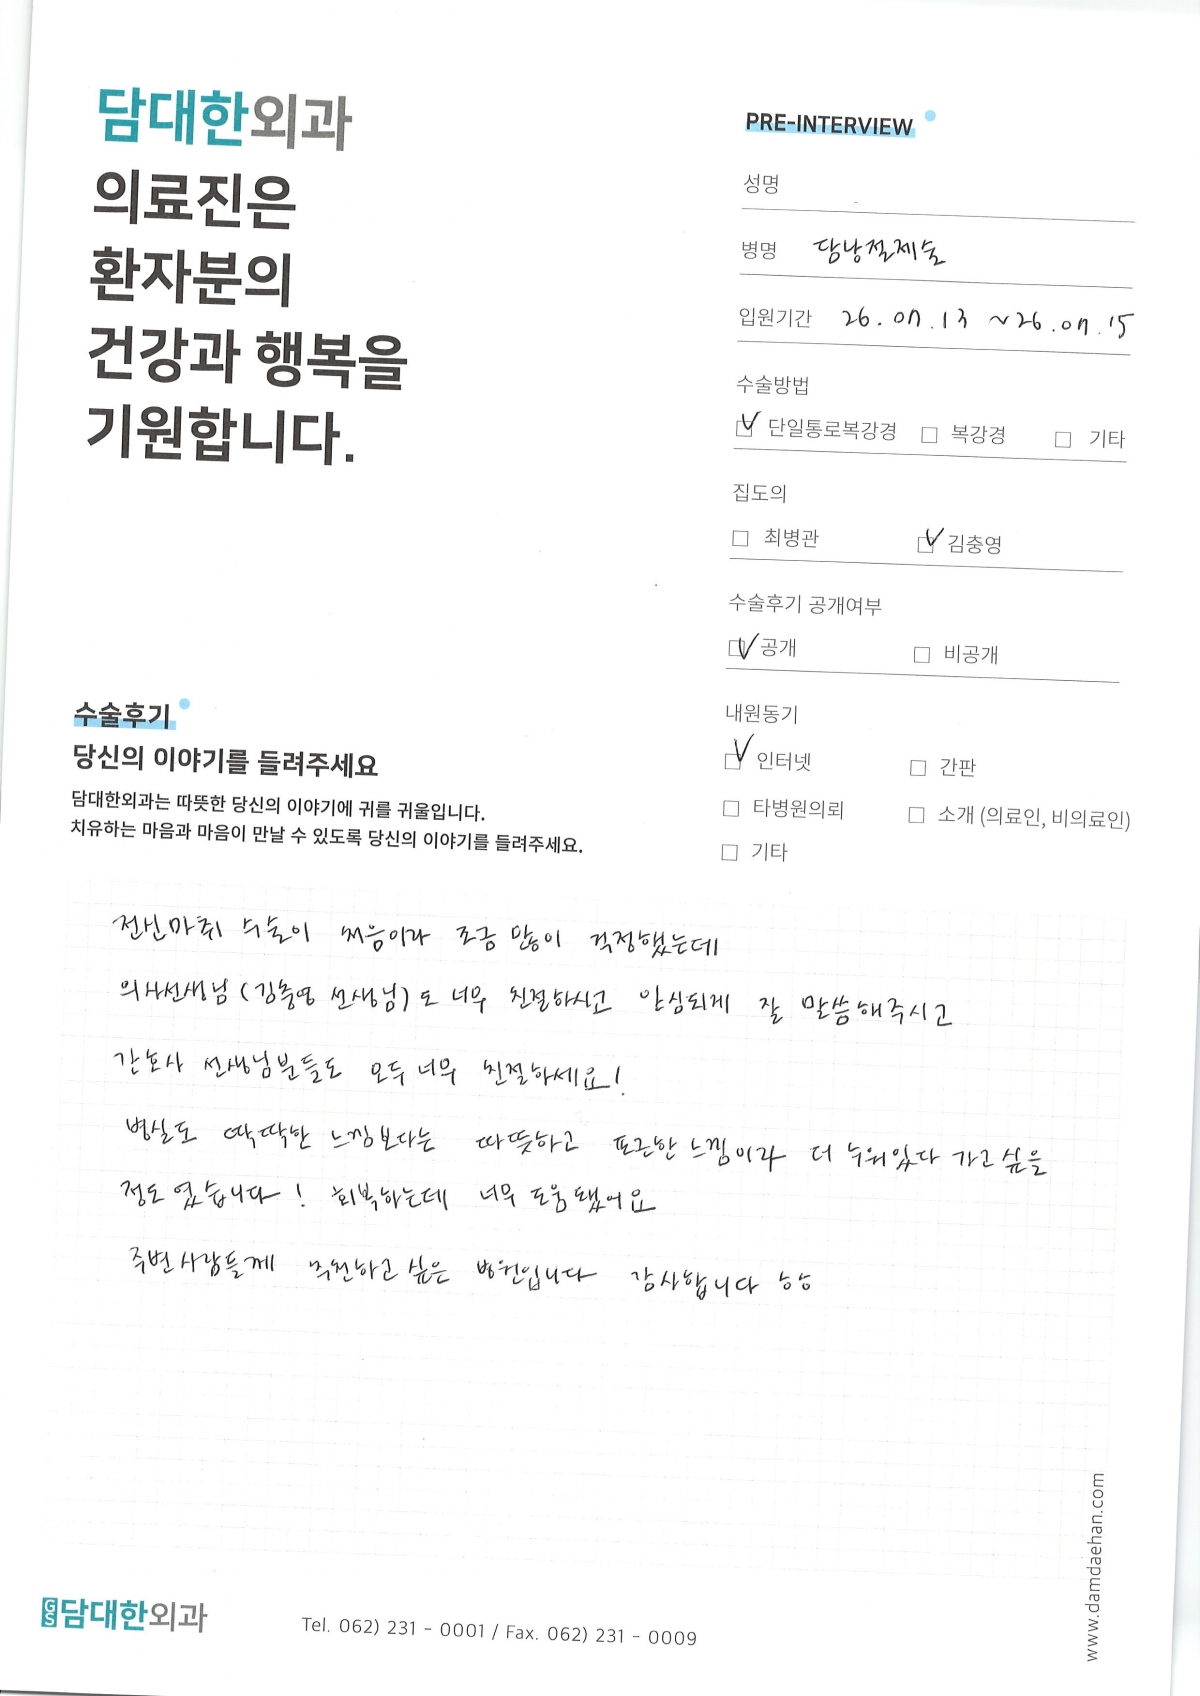 담대한외과
의료진은
환자분의
건강과 행복을
기원합니다.
PRE-INTERVIEW
성명
병명 담낭절제술
입원기간 26.07.13 ~26.07.15
수술방법
단일통로복강경 복강경 기타
집도의
최병관 김충영
수술후기 공개여부
공개 비공개
내원동기
인터넷 간판
타병원의뢰 소개 (의료인, 비의료인)
기타
수술후기
당신의 이야기를 들려주세요
담대한외과는 따뜻한 당신의 이야기에 귀를 귀울입니다.
치유하는 마음과 마음이 만날 수 있도록 당신의 이야기를 들려주세요.
전신마취 수술이 처음이라 조금 많이 걱정했는데
의사선생님(김충영 선생님)도 너무 친절하시고 안심되게 잘 말씀해주시고
간호사 선생님분들도 모두 너무 친절하세요!
병실도 딱딱한 느낌보다는 따뜻하고 포근한 느낌이라 더 누워있다 가고싶을
정도였습니다! 회복하는데 너무 도움됐어요
주변사람들께 추천하고싶은 병원입니다 감사합니다 ㅎㅎ
GS 담대한외과
Tel. 062) 231 - 0001 / Fax. 062) 231 - 0009
www.damdaehan.com